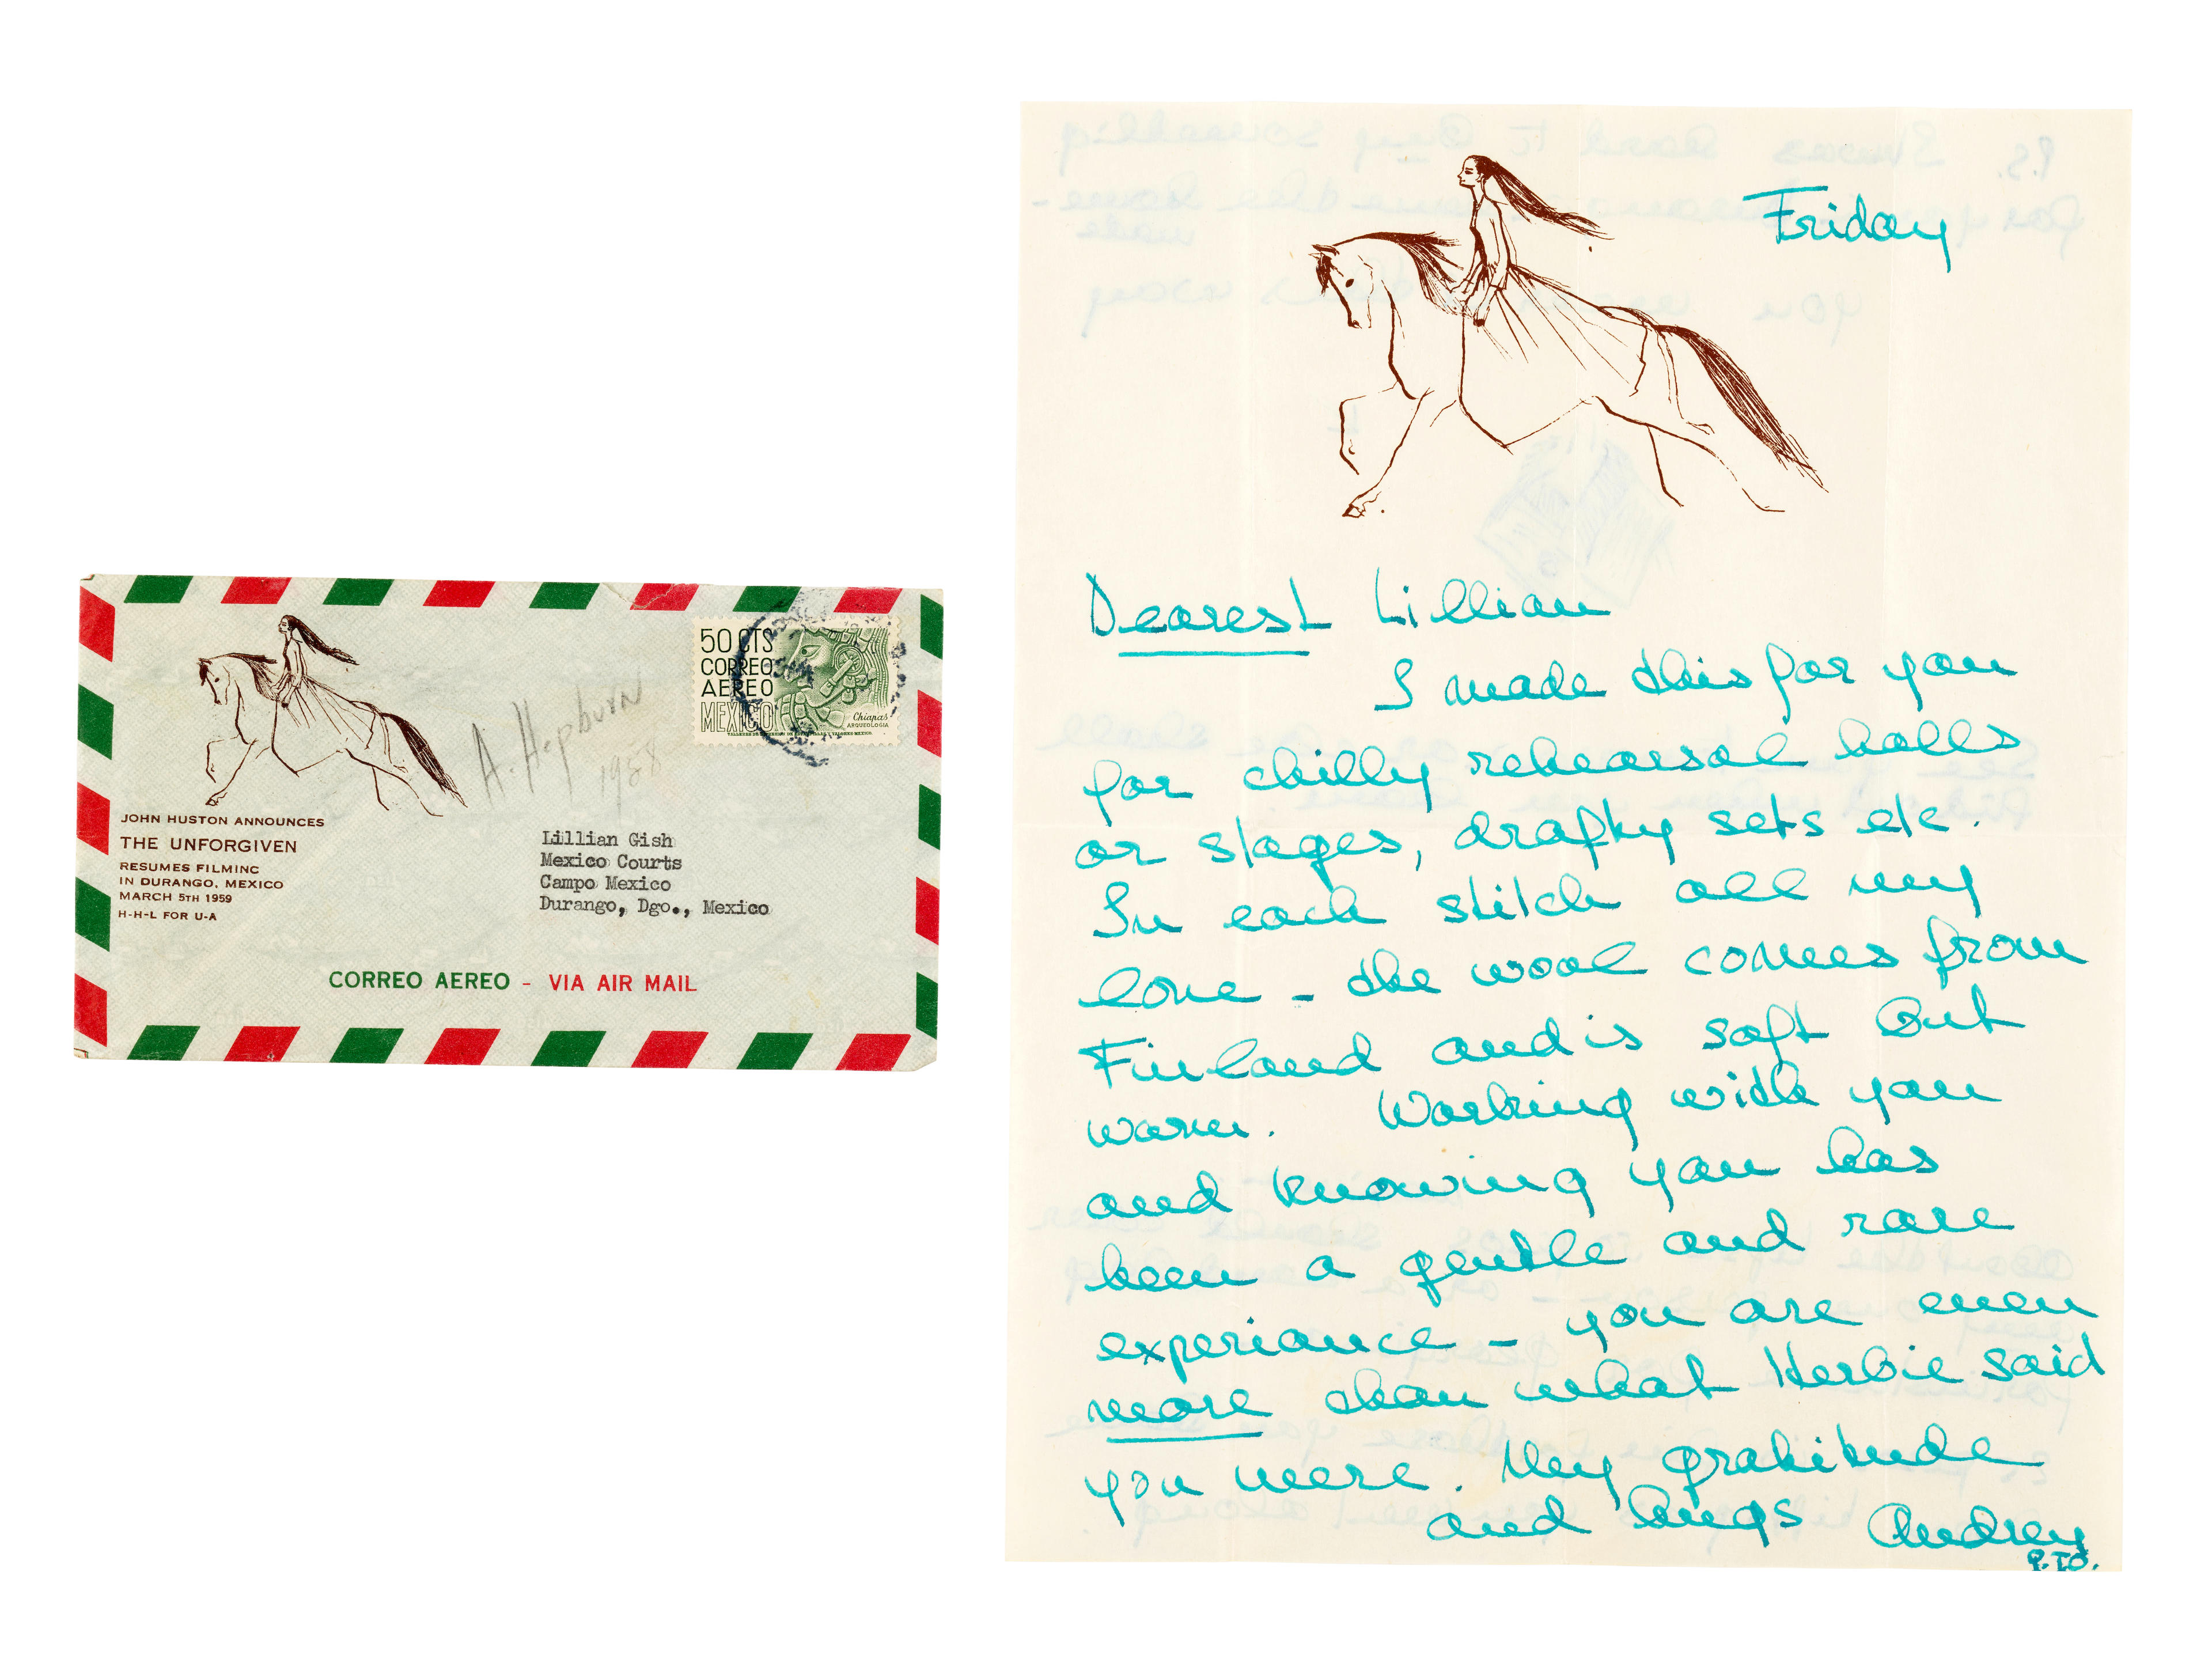 A. Hepburn
1958
50 CTS
CORREO
AEREO
MEXICO
Chiapas
ARQUEOLOGIA
JOHN HUSTON ANNOUNCES
THE UNFORGIVEN
RESUMES FILMING
IN DURANGO, MEXICO
MARCH 5TH 1959
H-H-L FOR U-A
Lillian Gish
Mexico Courts
Campo Mexico
Durango, Dgo., Mexico
CORREO AEREO - VIA AIR MAIL
Friday
Dearest Lillian
I made this for you
for chilly rehearsal halls
or stages, drafty sets etc.
In each stitch all my
love - the wool comes from
Finland and is soft but
warm. Working with you
and knowing you has
been a gentle and rare
experiance - you are even
more than what Herbie said
you were. My gratitude
and hugs Audrey
P.T.O.